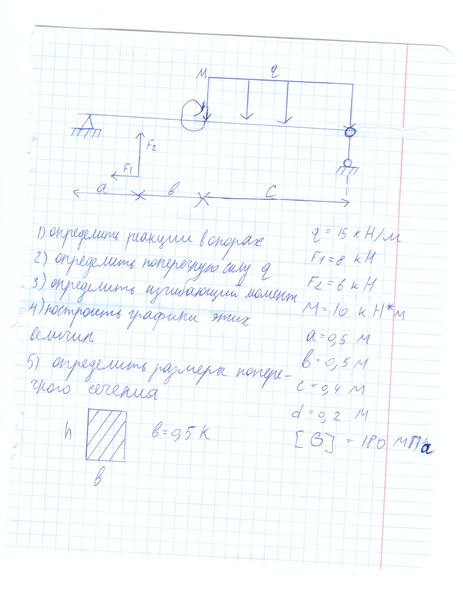 M q
F2
F1
a в c
1) определить реакции в опорах
2) определить поперечную силу q
3) определить изгибающий момент
4) построить графики этих
величин
5) определить размеры попере-
чного сечения
q = 15 кН/м
F1 = 8 кН
F2 = 6 кН
M = 10 кН*м
a = 0,5 м
в = 0,5 м
c = 0,4 м
d = 0,2 м
[б] = 180 МПа
h в = 0,5 K
в